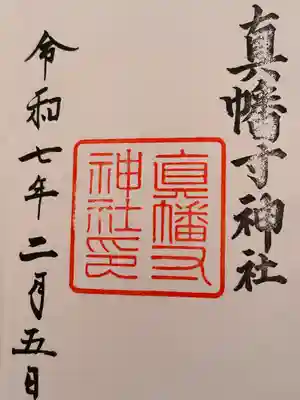 真幡寸神社
真幡寸
神社印
令和七年二月五日